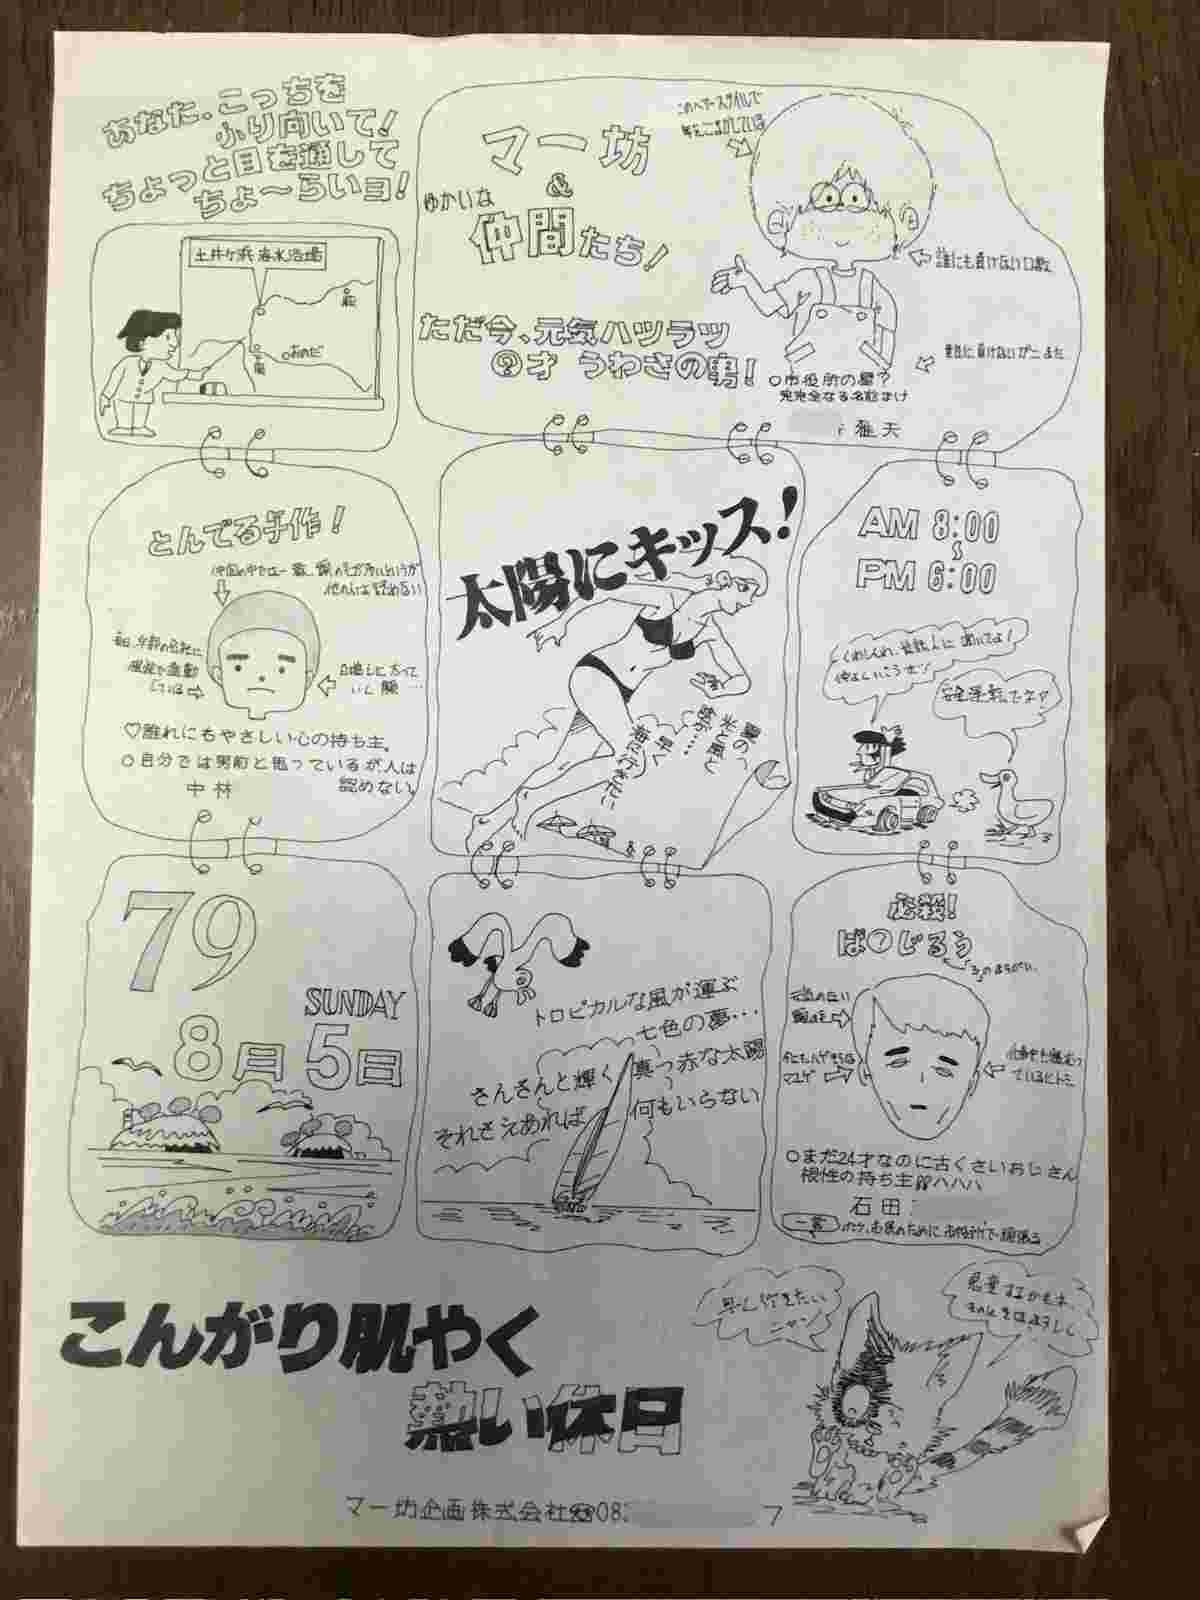 あなた、こっちを
ふり向いて!
ちょっと目を通して
ちょ〜らいヨ!
土井ケ浜海水浴場
萩
おのだ
マー坊
&
ゆかいな
仲間たち!
ただ今、元気ハツラツ
?才 うわさの男!
このヘアースタイルで
年をごまかしている
誰にも負けない口数
○市役所の星?
完完全なる名前まけ
雅天
とんでる与作!
♡誰れにもやさしい心の持ち主。
○自分では男前と思っているが人は
認めない。
中林
太陽にキッス!
夏の、
光と風と
早く
海に行きたい
AM 8:00
〜
PM 6:00
安全運転でネ?
79
SUNDAY
8月5日
トロピカルな風が運ぶ
七色の夢…
さんさんと輝く 真っ赤な太陽
それさえあれば 何もいらない
必殺!
ば?じろう
○まだ24才なのに古くさいおじさん
根性の持ち主 ハハハ
石田
一言 ボク、市民のために市役所で頑張る
早く行きたい
ニャン
こんがり肌やく
熱い休日
マー坊企画株式会社☎08
7